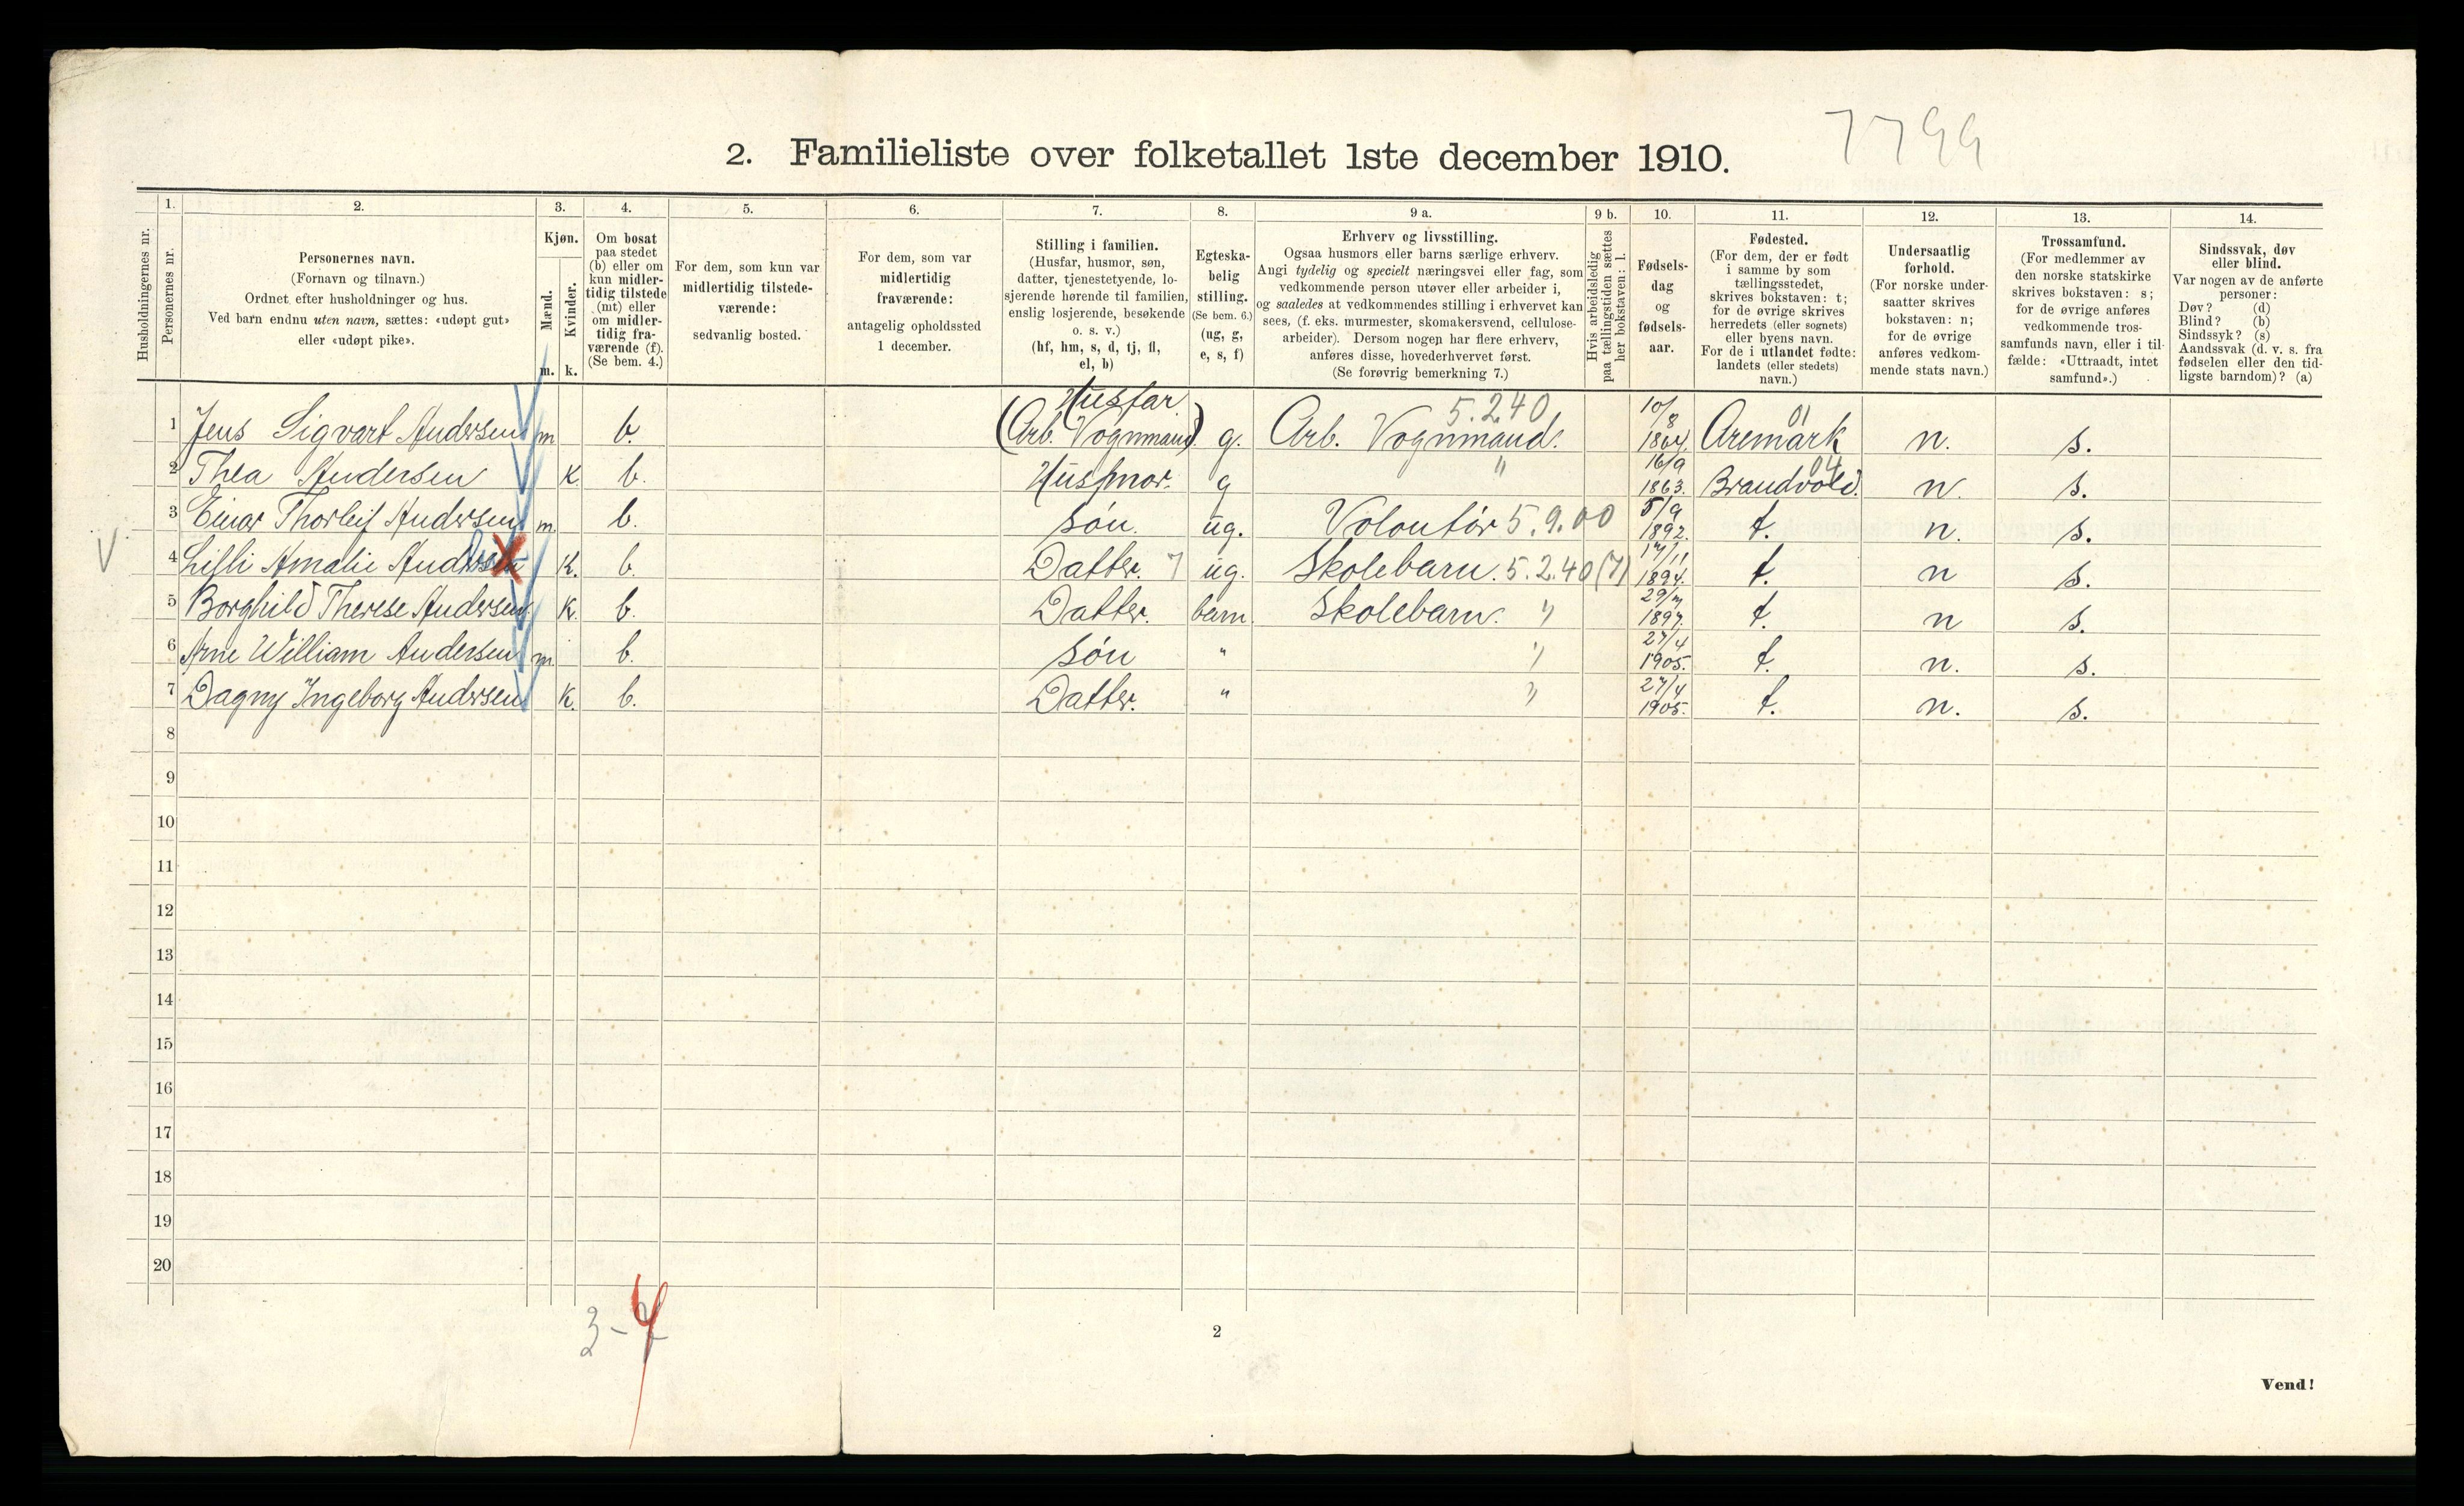 7799
2. Familieliste over folketallet 1ste december 1910.
Husholdningernes nr.
1.
Personernes nr.
2.
Personernes navn.
(Fornavn og tilnavn.)
Ordnet efter husholdninger og hus.
Ved barn endnu uten navn, sættes: «udøpt gut»
eller «udøpt pike».
3.
Kjøn.
Mænd.
Kvinder.
m.
k.
4.
Om bosat
paa stedet
(b) eller om
kun midler-
tidig tilstede
(mt) eller
om midler-
tidig fra-
værende (f).
(Se bem. 4.)
5.
For dem, som kun var
midlertidig tilstede-
værende:
sedvanlig bosted.
6.
For dem, som var
midlertidig
fraværende:
antagelig opholdssted
1 december.
7.
Stilling i familien.
(Husfar, husmor, søn,
datter, tjenestetyende, lo-
sjerende hørende til familien,
enslig losjerende, besøkende
o. s. v.)
(hf, hm, s, d, tj, fl,
el, b)
8.
Egteska-
belig
stilling.
(Se bem. 6.)
(ug, g,
e, s, f)
9 a.
Erhverv og livsstilling.
Ogsaa husmors eller barns særlige erhverv.
Angi tydelig og specielt næringsvei eller fag, som
vedkommende person utøver eller arbeider i,
og saaledes at vedkommendes stilling i erhvervet kan
sees, (f. eks. murmester, skomakersvend, cellulose-
arbeider). Dersom nogen har flere erhverv,
anføres disse, hovederhvervet først.
(Se forøvrig bemerkning 7.)
9 b.
Hvis arbeidsledig
paa tællingstiden sættes
her bokstaven: l.
10.
Fødsels-
dag
og
fødsels-
aar.
11.
Fødested.
(For dem, der er født
i samme by som
tællingsstedet,
skrives bokstaven: t;
for de øvrige skrives
herredets (eller sognets)
eller byens navn.
For de i utlandet fødte:
landets (eller stedets)
navn.)
12.
Undersaatlig
forhold.
(For norske under-
saatter skrives
bokstaven: n;
for de øvrige
anføres vedkom-
mende stats navn.)
13.
Trossamfund.
(For medlemmer av
den norske statskirke
skrives bokstaven: s;
for de øvrige anføres
vedkommende tros-
samfunds navn, eller i til-
fælde: «Uttraadt, intet
samfund».)
14.
Sindssvak, døv
eller blind.
Var nogen av de anførte
personer:
Døv? (d)
Blind? (b)
Sindssyk? (s)
Aandssvak (d. v. s. fra
fødselen eller den tid-
ligste barndom)? (a)
1 Jens Sigvart Andersen m b. Husfar (Arb. Vognmand) g. Arb. Vognmand. 5.240 10/8 1864. Aremark 01 n. s.
2 Thea Andersen K b. Husmor. g " 16/9 1863. Brandvold. 04 n. s.
3 Einar Thorleif Andersen m. b. søn. ug. Volontør 5.9.00 5/9 1892. t. n. s.
V 4 Lilli Amalie Andersen K. b. Datter. 7 ug. Skolebarn. 5.2.40 (7) 17/11 1894. t. n s.
5 Borghild Therese Andersen K. b. Datter. barn. Skolebarn. " 1897. t. n s.
6 Arne William Andersen m. b. søn " " 27/4 1905. t. n. s.
7 Dagny Ingeborg Andersen K. b. Datter. " " 27/4 1905. t. n. s.
8
9
10
11
12
13
14
15
16
17
18
19
20
3-4
2
Vend!